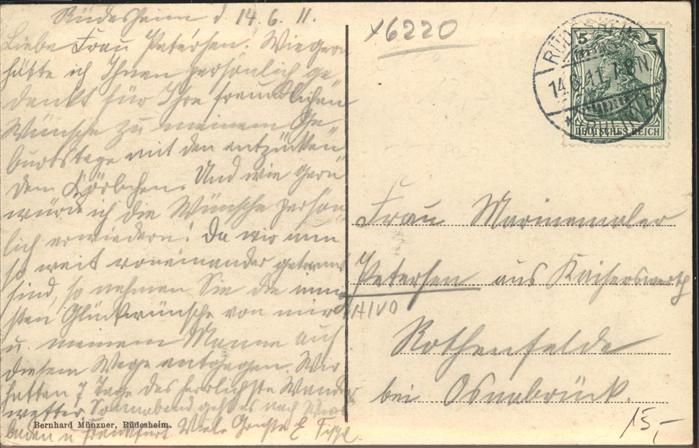 Rüdesheim d 14.6.11.
Liebe Frau Petersen! Wie gern
hätte ich Ihnen persönlich ge=
dankt für Ihre freundlichen
Wünsche zu meinem Ge=
burtstage mit den entzücken=
den Körbchen. Und wie gern
würde ich die Wünsche persön=
lich erwiedern! Da wir nun
so weit voneinander getrennt
sind, so nehmen Sie die
sten Glückwünsche von mir
u. meinem Manne auf
diesem Wege entgegen. Wir
hatten 7 Tage das herrlichste Wander
wetter. Sonnabend geht es nach
baden u Frankfurt. Viele Grüsse E
Bernhard Münzner, Rüdesheim.
x6220
5 5
DEUTSCHES REICH
14.6.11. 7-8N
Frau Marinemaler
Petersen aus Kaiserswerth
Rothenfelde
bei Osnabrück.
15-